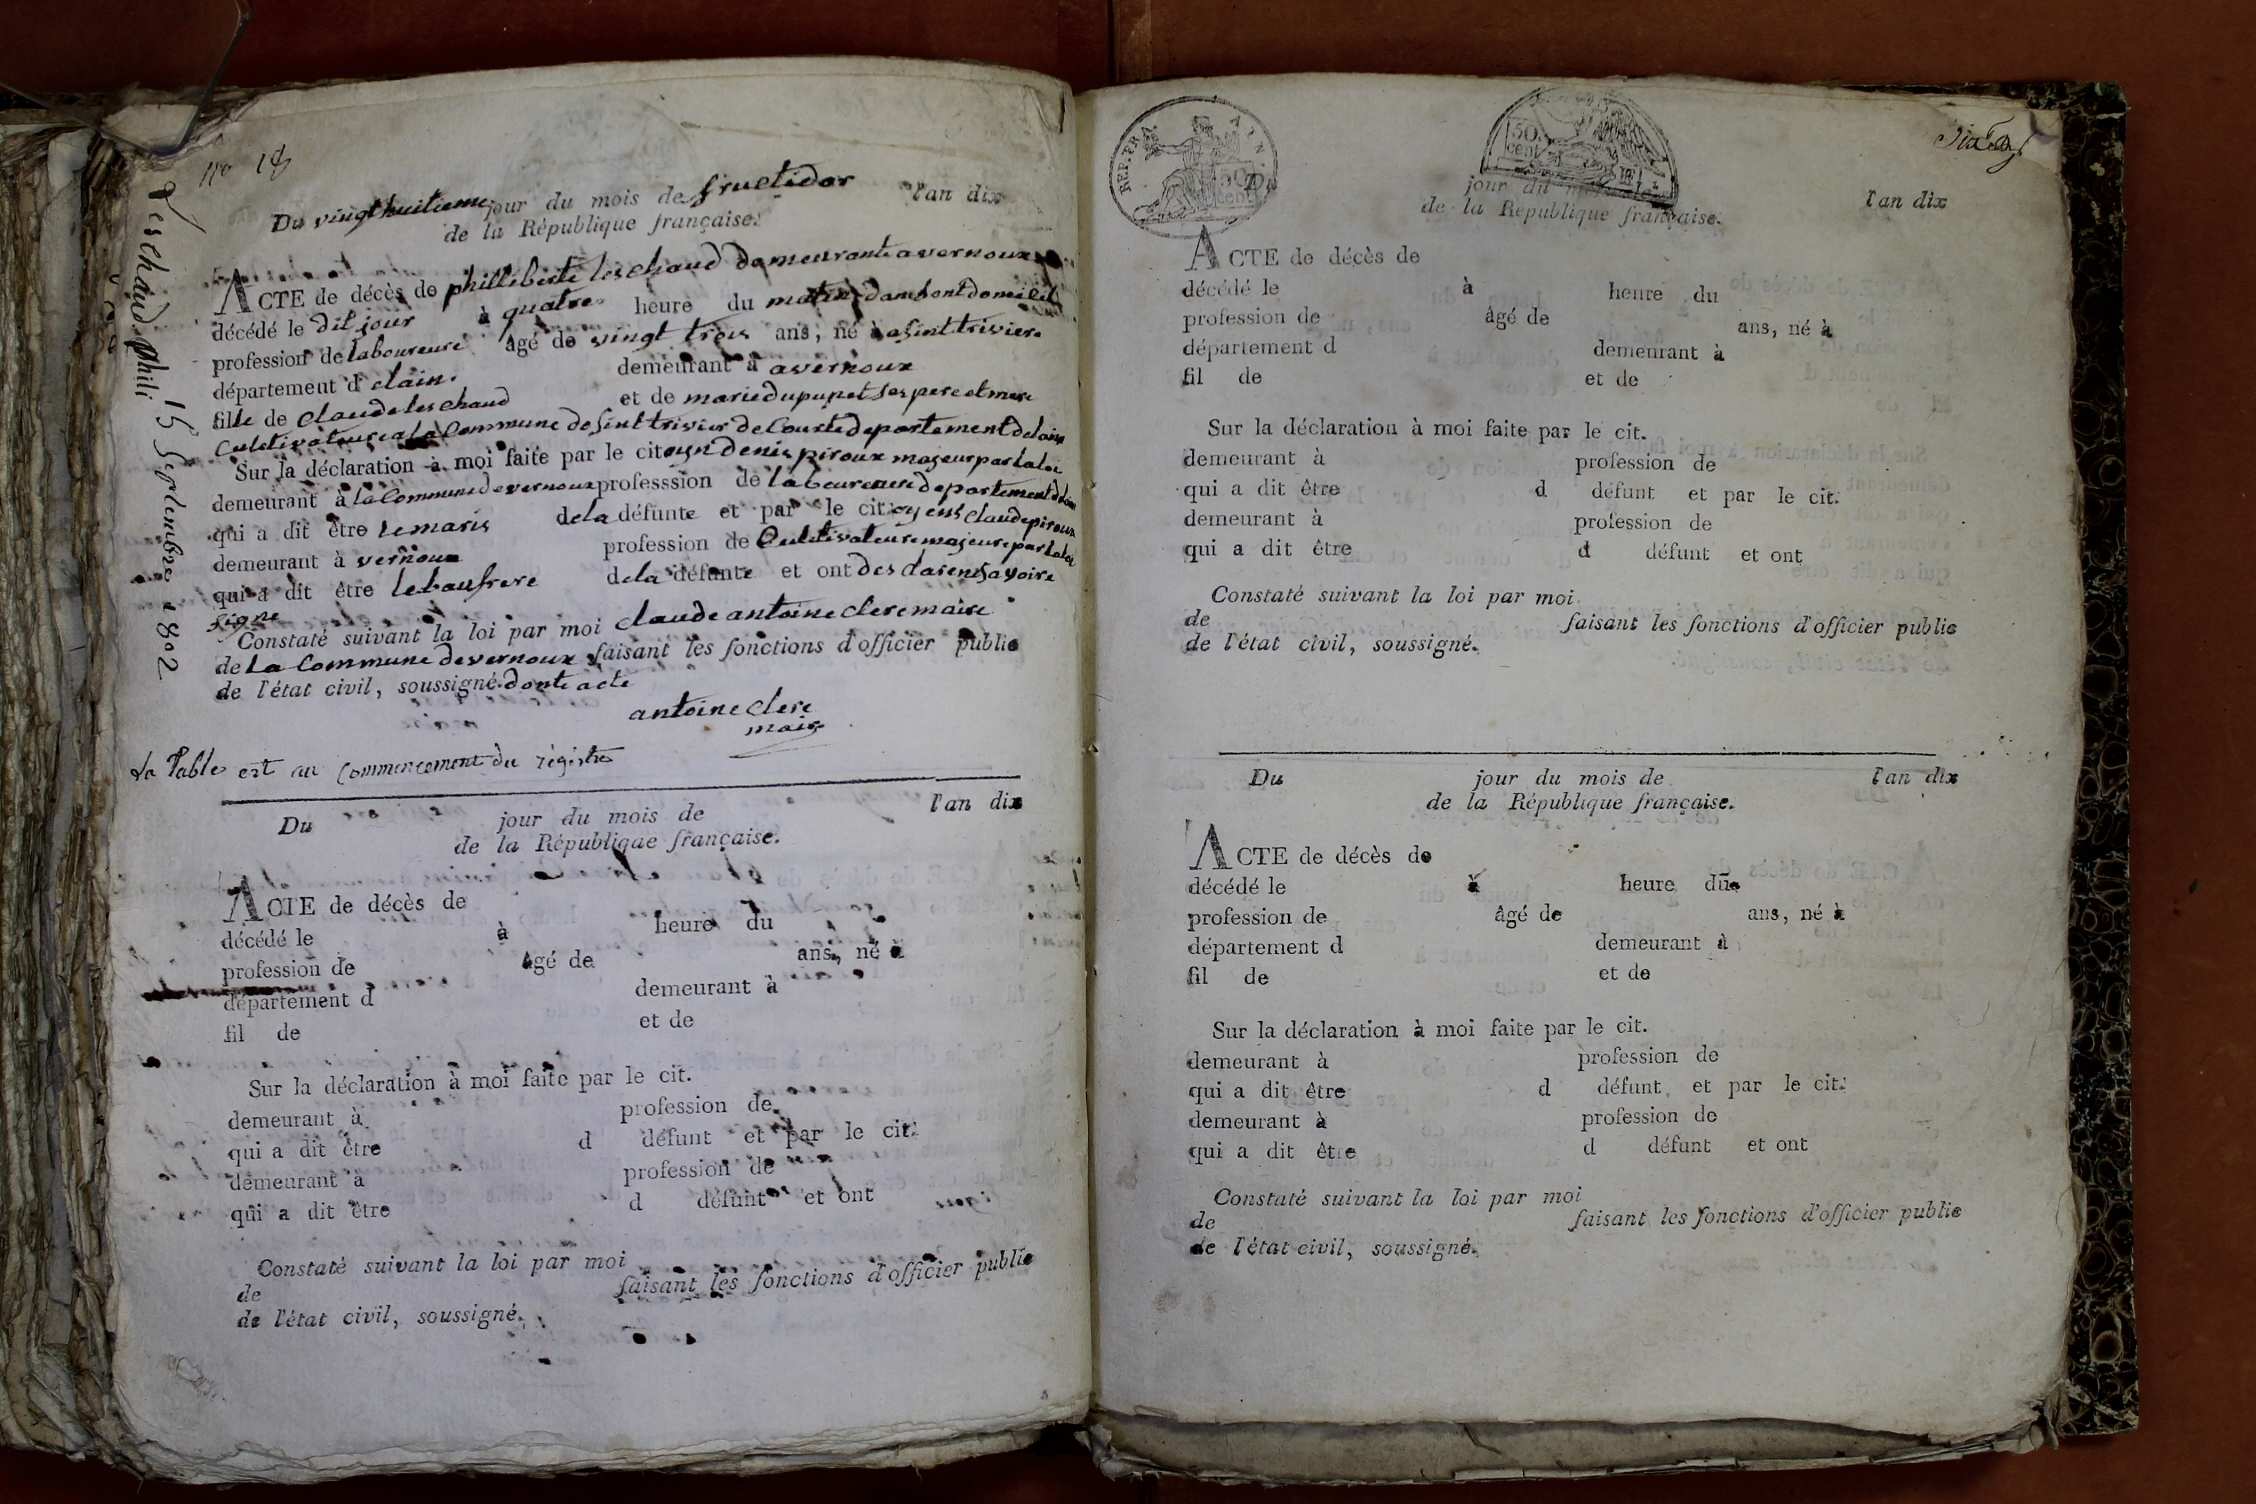 no 18
Du vingt huitieme jour du mois de fructidor l'an dix
de la République française.
ACTE de décès de philliberte leschaud demeurante a vernoux
décédé le dit jour à quatre heure du matin dans sont domicil
profession de laboureure âgé de vingt trois ans, né à a sint trivier
département d clain. demeurant à a vernoux
fille de claude leschaud et de marie dupupet ses pere et mere
Culetivateure a la Commune de sint trivier de Courte departement delain
Sur la déclaration à moi faite par le citoyn denis piroux majeur par la loi
demeurant à la Commune de vernoux professsion de laboureure departement delain
qui a dit être le maris de la défunte et par le citoyens claude piroux
demeurant à vernoux profession de Culetivateure majeure par la loi
qui a dit être le baufrere de la défunte et ont des clarer savoire
signe
Constaté suivant la loi par moi claude antoine clere maire
de La Commune de vernoux faisant les fonctions d'officier public
de l'état civil, soussigné. donte acte
antoine clere
maire
Leschaud phili
15 Septembre 1802
La Table est au commencement du régistre
Du jour du mois de l'an dix
de la République française.
ACTE de décès de
décédé le à heure du
profession de âgé de ans, né à
département d demeurant à
fil de et de
Sur la déclaration à moi faite par le cit.
demeurant à profession de
qui a dit être d défunt et par le cit.
demeurant à profession de
qui a dit être d défunt et ont
Constaté suivant la loi par moi
de faisant les fonctions d'officier public
de l'état civil, soussigné.
REP. FRA.
50
cent
50
cent
Du jour du mois de l'an dix
de la République française.
ACTE de décès de
décédé le à heure du
profession de âgé de ans, né à
département d demeurant à
fil de et de
Sur la déclaration à moi faite par le cit.
demeurant à profession de
qui a dit être d défunt et par le cit.
demeurant à profession de
qui a dit être d défunt et ont
Constaté suivant la loi par moi
de faisant les fonctions d'officier public
de l'état civil, soussigné.
Du jour du mois de l'an dix
de la République française.
ACTE de décès de
décédé le à heure du
profession de âgé de ans, né à
département d demeurant à
fil de et de
Sur la déclaration à moi faite par le cit.
demeurant à profession de
qui a dit être d défunt et par le cit.
demeurant à profession de
qui a dit être d défunt et ont
Constaté suivant la loi par moi
de faisant les fonctions d'officier public
de l'état civil, soussigné.